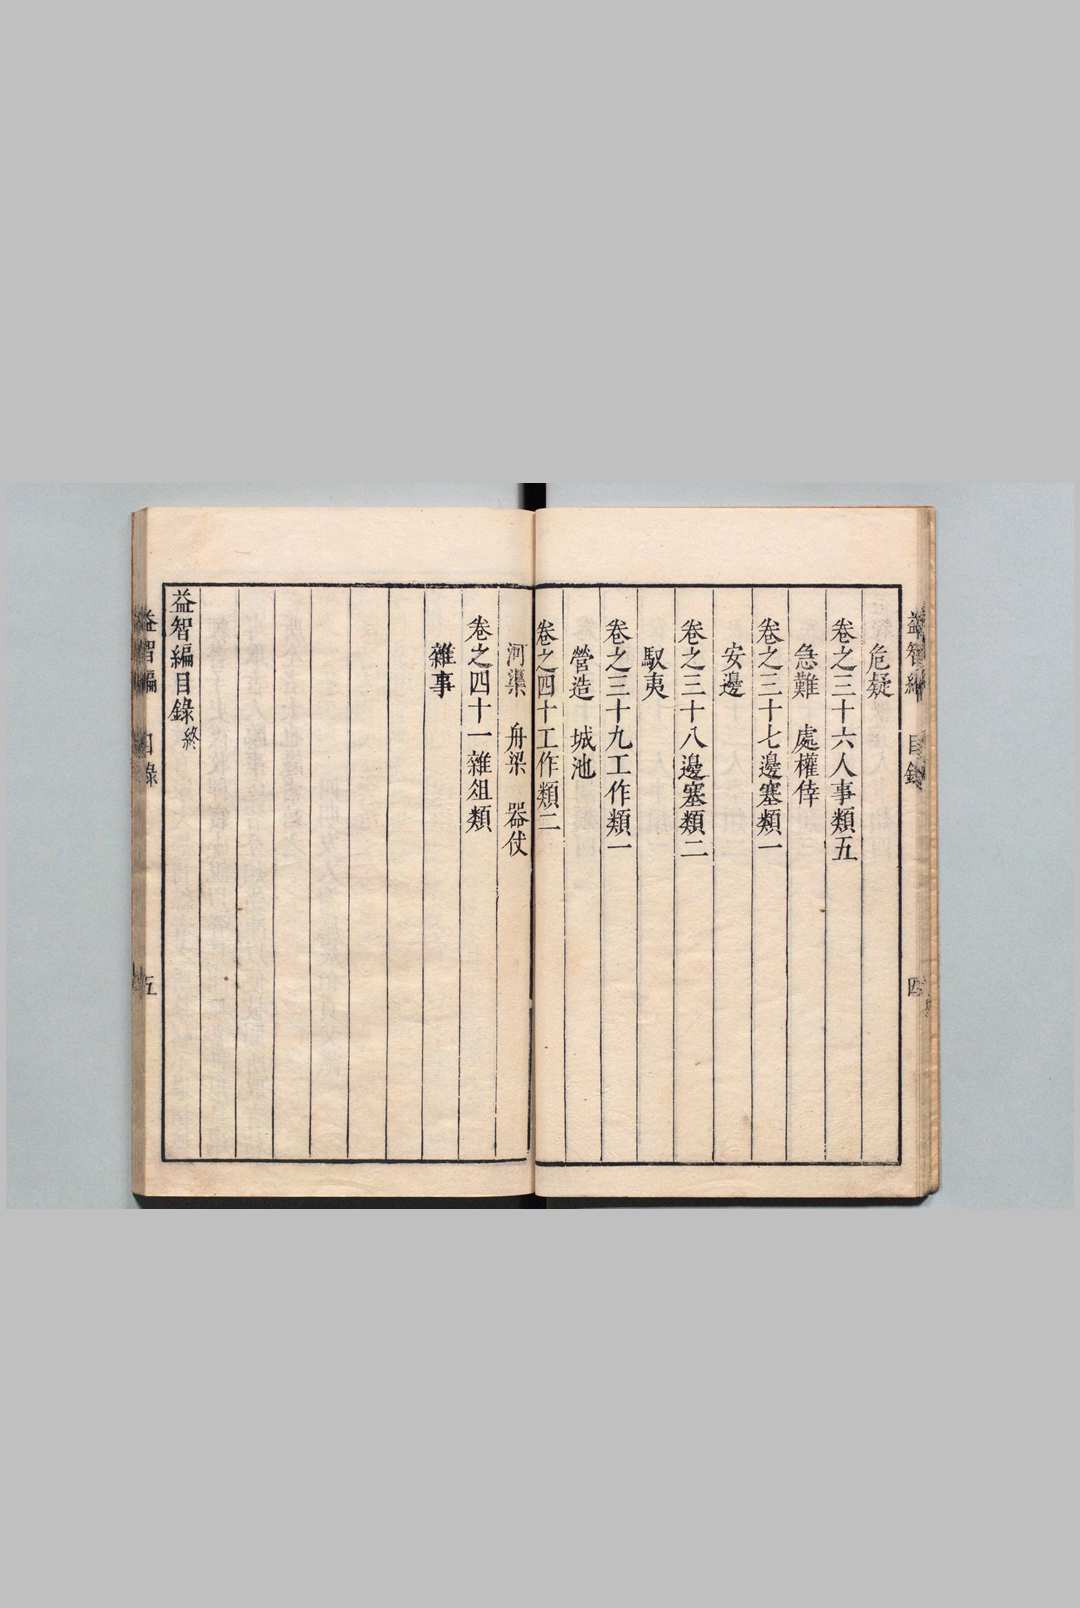 益智編 目錄 四
危疑
卷之三十六人事類五
急難 處權倖
卷之三十七邊塞類一
安邊
卷之三十八邊塞類二
馭夷
卷之三十九工作類一
營造 城池
卷之四十工作類二
河渠 舟梁 器仗
卷之四十一雜俎類
雜事
益智編目錄終
益智編 目錄 五